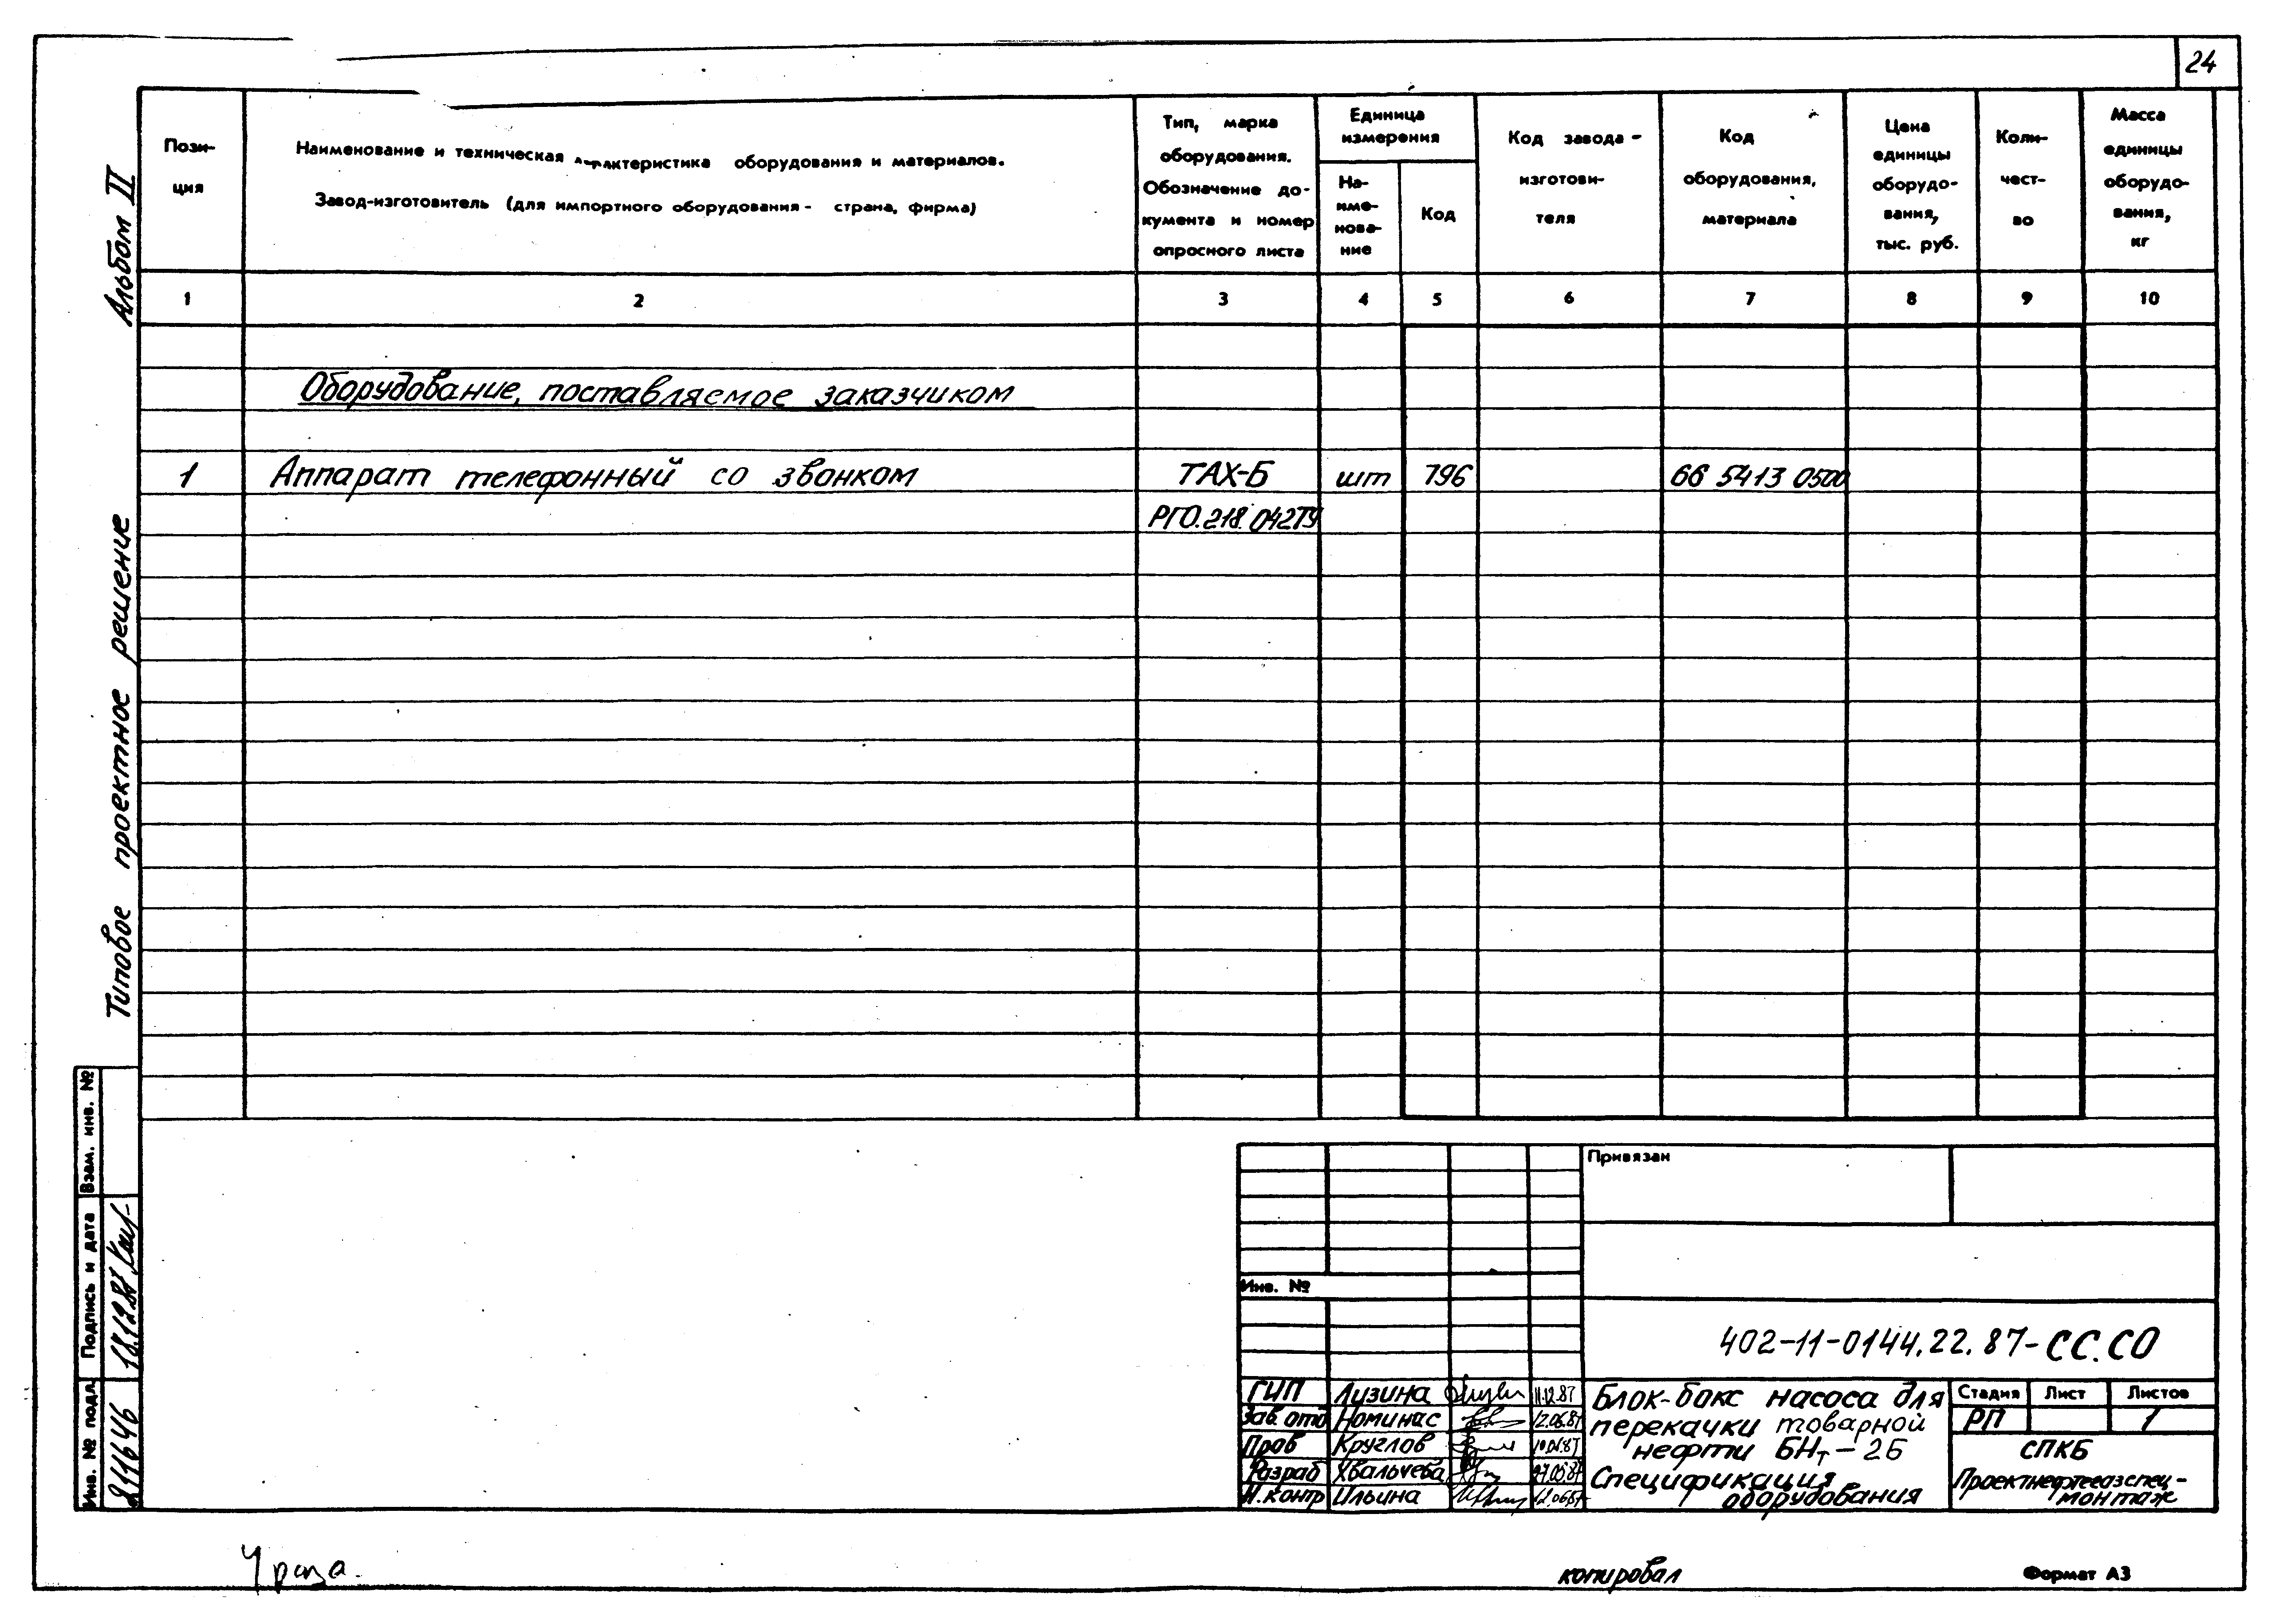 24
Пози-
ция
Наименование и техническая характеристика оборудования и материалов.
Завод-изготовитель (для импортного оборудования - страна, фирма)
Тип, марка
оборудования.
Обозначение до-
кумента и номер
опросного листа
Единица
измерения
На-
име-
нова-
ние
Код
Код завода -
изготови-
теля
Код
оборудования,
материала
Цена
единицы
оборудо-
вания,
тыс. руб.
Коли-
чест-
во
Масса
единицы
оборудо-
вания,
кг
1 2 3 4 5 6 7 8 9 10
Оборудование, поставляемое заказчиком
1 Аппарат телефонный со звонком ТАХ-Б шт 796 66 5413 0500
РГО.218.042ТУ
Альбом II
Типовое проектное решение
Взам. инв. №
Подпись и дата
18.12.87
Инв. № подл.
2141646
Привязан
Инв. №
402-11-0144.22.87-СС.СО
ГИП Лизина 11.12.87
Зав. отд Номинас 12.06.87
Пров Круглов 10.06.87
Разраб Хвальчева 27.05.87
Н.контр Ильина 12.06.87
Блок-бокс насоса для
перекачки товарной
нефти БНт-2Б
Спецификация
оборудования
Стадия Лист Листов
РП 1
СПКБ
Проектнефтегазспец-
монтаж
копировал
Формат А3